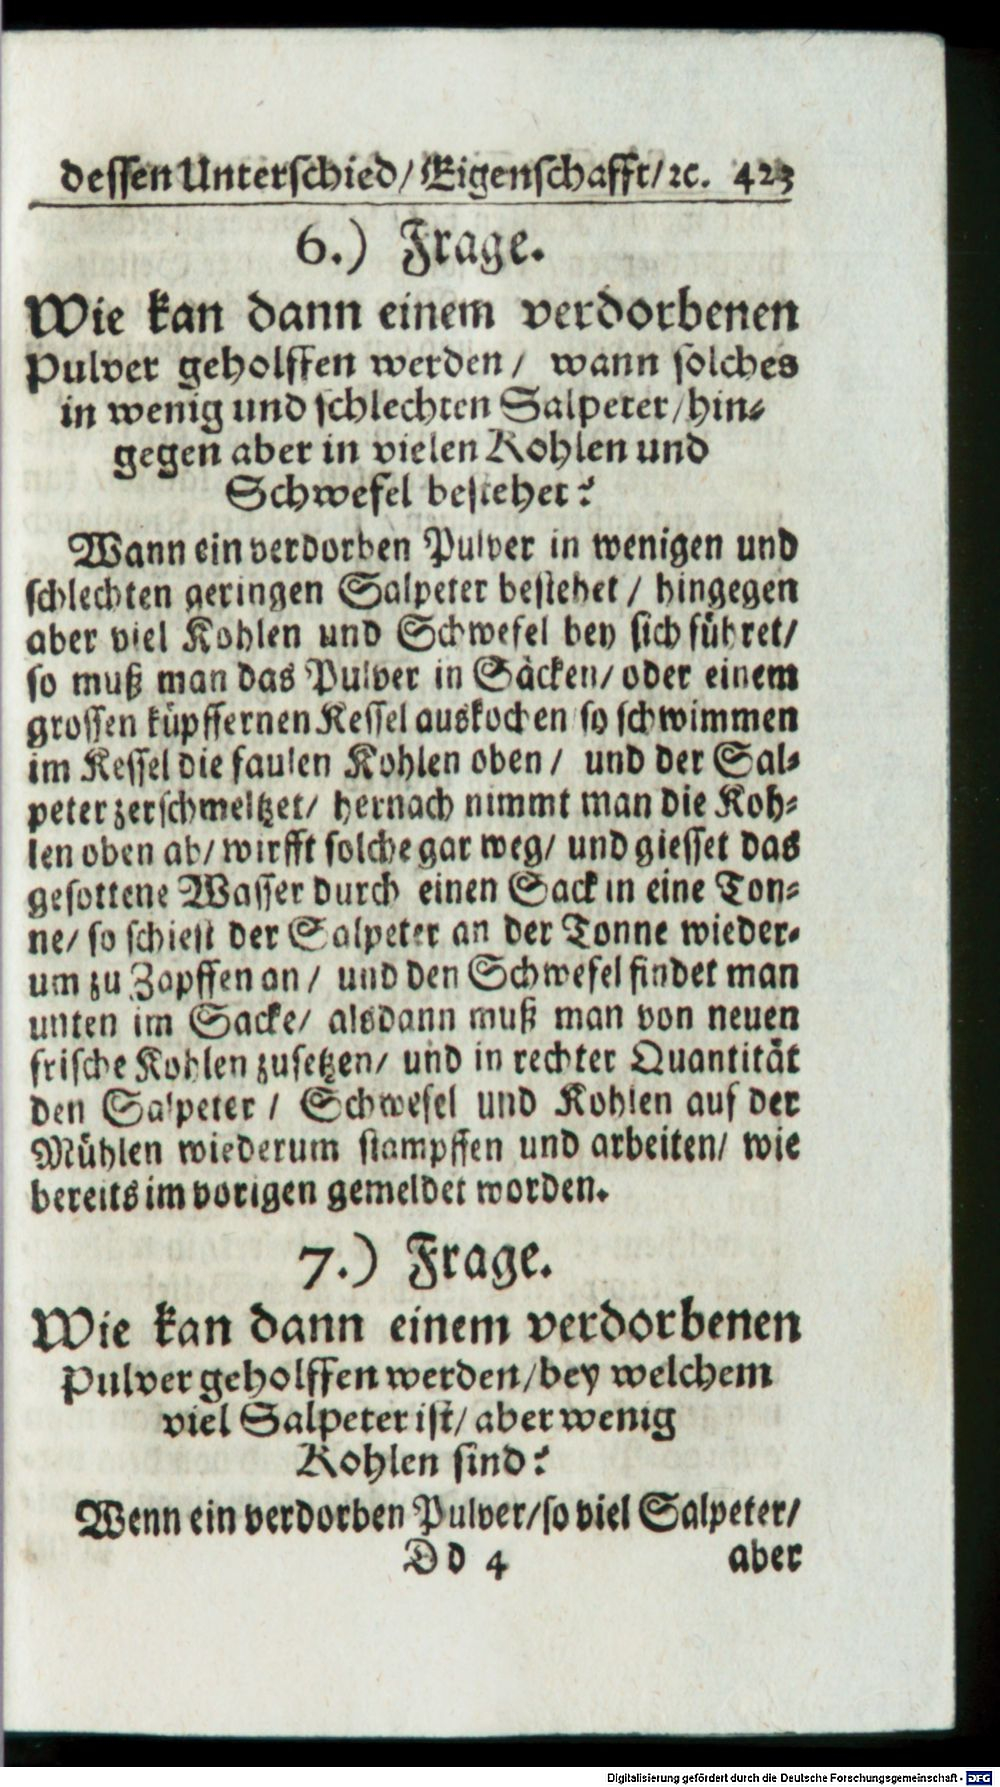 dessen Unterschied/ Eigenschafft/ ꝛc. 423
6.) Frage.
Wie kan dann einem verdorbenen
Pulver geholffen werden/ wann solches
in wenig und schlechten Salpeter/ hin-
gegen aber in vielen Kohlen und
Schwefel bestehet?
Wann ein verdorben Pulver in wenigen und
schlechten geringen Salpeter bestehet / hingegen
aber viel Kohlen und Schwefel bey sich führet/
so muß man das Pulver in Säcken/ oder einem
grossen küpffernen Kessel auskochen so schwimmen
im Kessel die faulen Kohlen oben / und der Sal-
peter zerschmeltzet/ hernach nimmt man die Koh-
len oben ab/ wirfft solche gar weg/ und giesset das
gesottene Wasser durch einen Sack in eine Ton-
ne/ so schiest der Salpeter an der Tonne wieder-
um zu Zapffen an / und den Schwefel findet man
unten im Sacke/ alsdann muß man von neuen
frische Kohlen zusetzen/ und in rechter Quantität
den Salpeter / Schwefel und Kohlen auf der
Mühlen wiederum stampffen und arbeiten/ wie
bereits im vorigen gemeldet worden.
7.) Frage.
Wie kan dann einem verdorbenen
Pulver geholffen werden/ bey welchem
viel Salpeter ist/ aber wenig
Kohlen sind?
Wenn ein verdorben Pulver/ so viel Salpeter/
Dd 4 aber
Digitalisierung gefördert durch die Deutsche Forschungsgemeinschaft - DFG